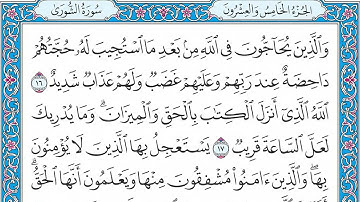 سُورَةُ الشُّورَىٰ
الجُزْءُ الخَامِسُ وَالعِشْرُونَ
وَالَّذِينَ يُحَاجُّونَ فِي اللَّهِ مِنْ بَعْدِ مَا اسْتُجِيبَ لَهُ حُجَّتُهُمْ
دَاحِضَةٌ عِندَ رَبِّهِمْ وَعَلَيْهِمْ غَضَبٌ وَلَهُمْ عَذَابٌ شَدِيدٌ ١٦
اللَّهُ الَّذِي أَنزَلَ الْكِتَٰبَ بِالْحَقِّ وَالْمِيزَانَ ۗ وَمَا يُدْرِيكَ
لَعَلَّ السَّاعَةَ قَرِيبٌ ١٧ يَسْتَعْجِلُ بِهَا الَّذِينَ لَا يُؤْمِنُونَ
بِهَا ۖ وَالَّذِينَ ءَامَنُوا مُشْفِقُونَ مِنْهَا وَيَعْلَمُونَ أَنَّهَا الْحَقُّ ۗ